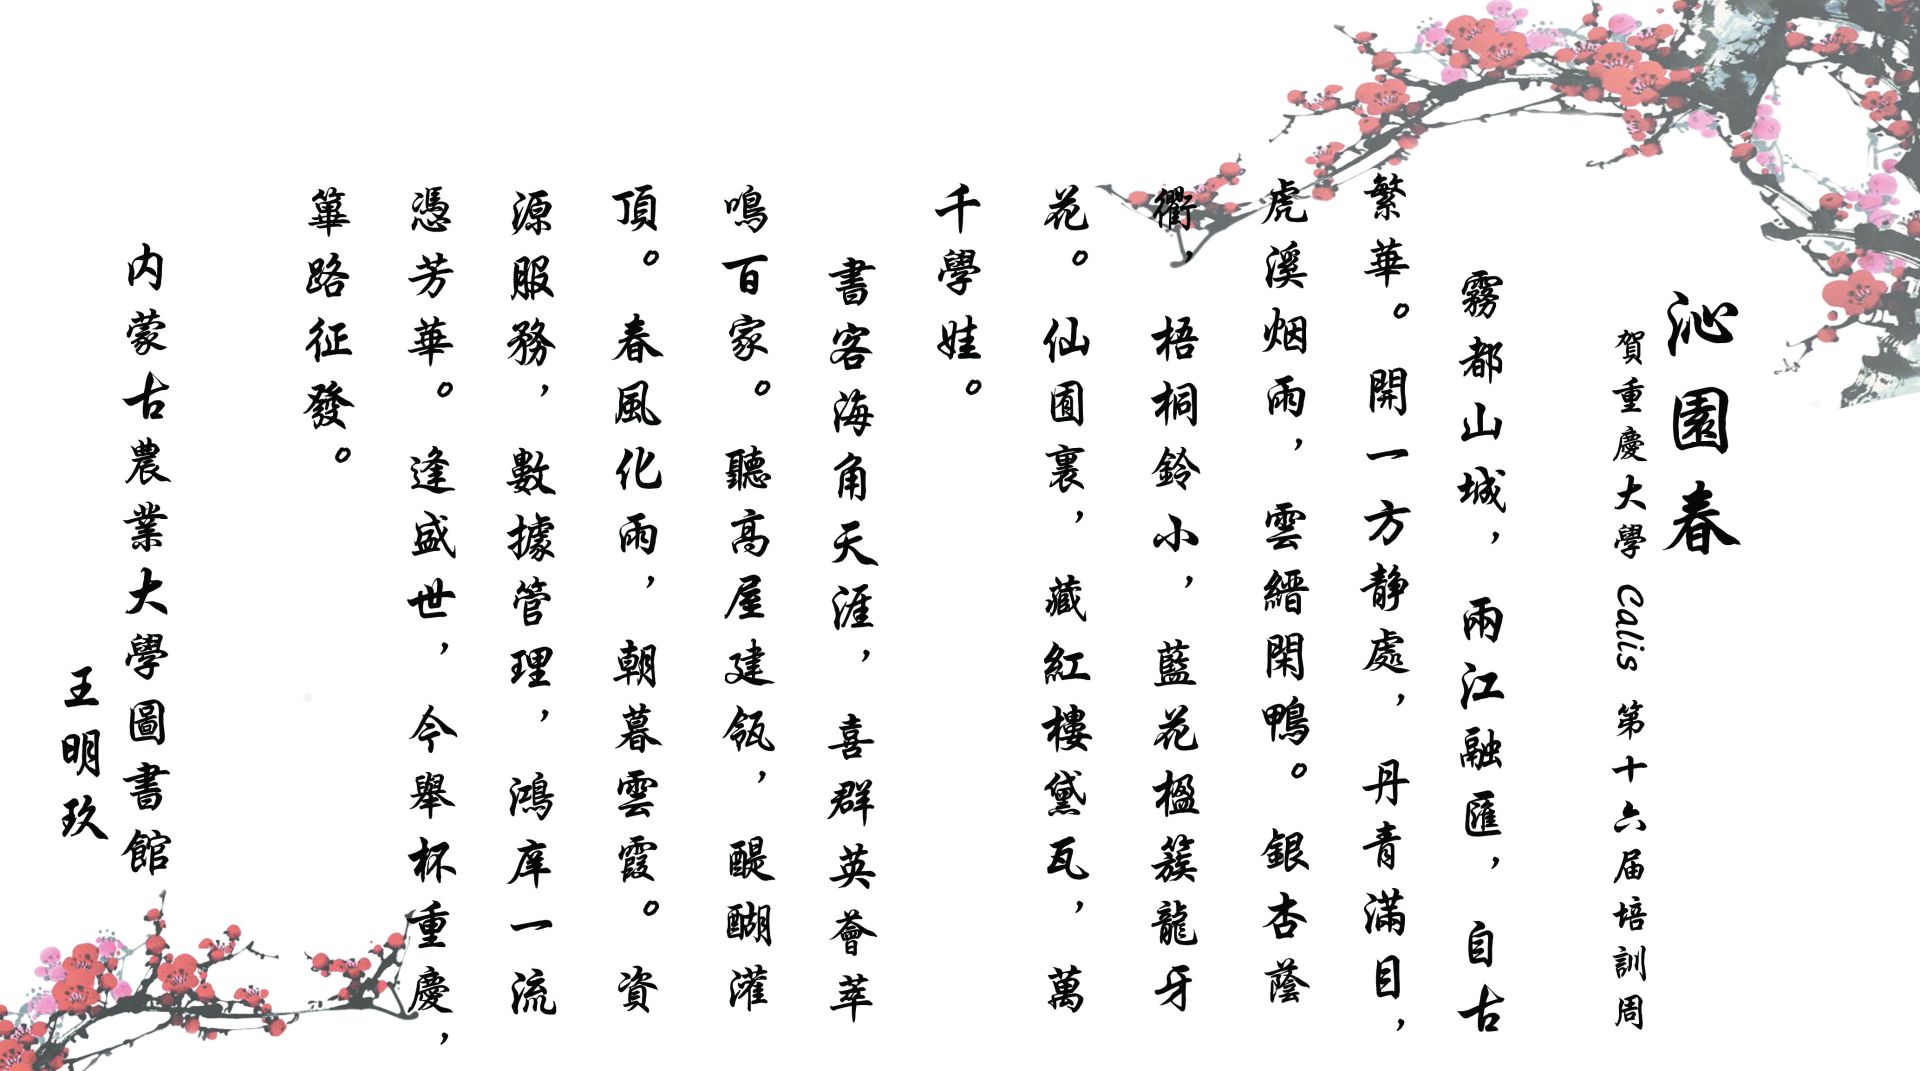 沁園春
賀重慶大學 Calis 第十六届培訓周
霧都山城，兩江融匯，自古
繁華。開一方静處，丹青滿目，
虎溪烟雨，雲縉閑鴨。銀杏蔭
衢，梧桐鈴小，藍花楹簇龍牙
花。仙囿裏，藏紅樓黛瓦，萬
千學娃。
書客海角天涯，喜群英薈萃
鳴百家。聽高屋建瓴，醍醐灌
頂。春風化雨，朝暮雲霞。資
源服務，數據管理，鴻庠一流
憑芳華。逢盛世，今舉杯重慶，
篳路征發。
内蒙古農業大學圖書館
王明玖